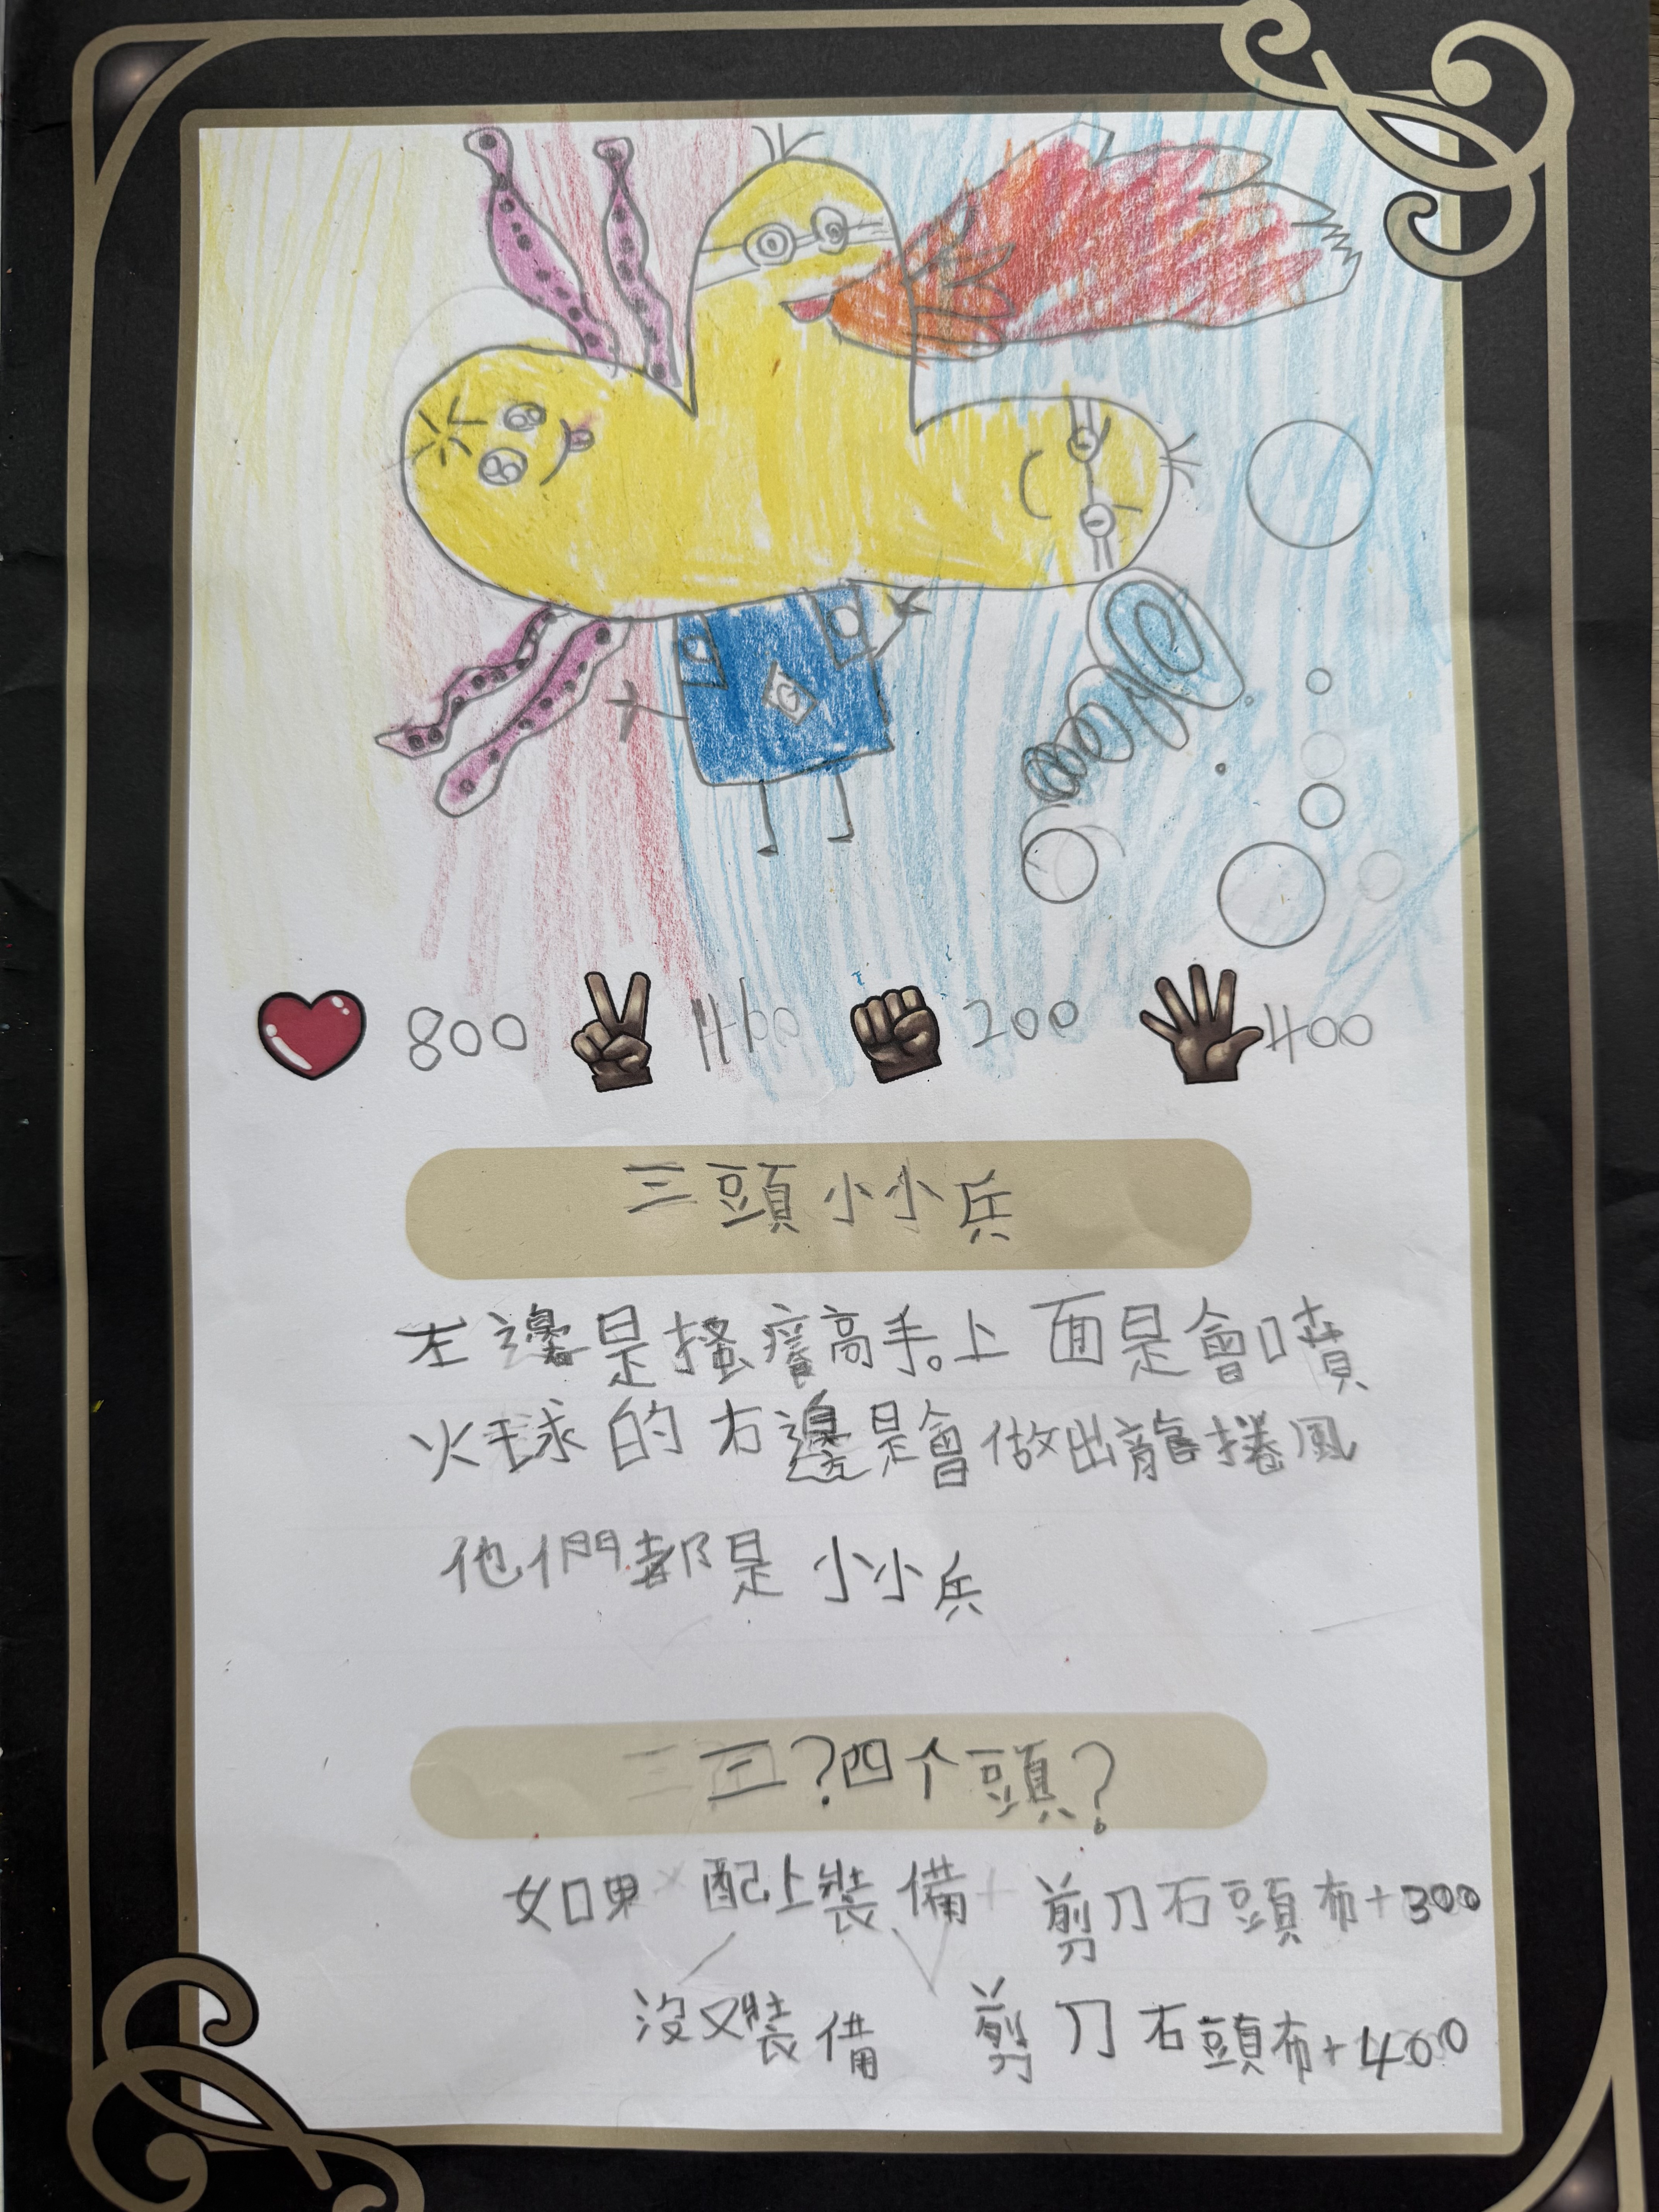 G
800 460 200 400
三頭小小兵
左邊是搔癢高手。上面是會噴
火球的右邊是會做出龍捲風
他們都是小小兵
三?四个頭?
如果配上裝備 剪刀石頭布+300
沒又裝備 剪刀石頭布+400